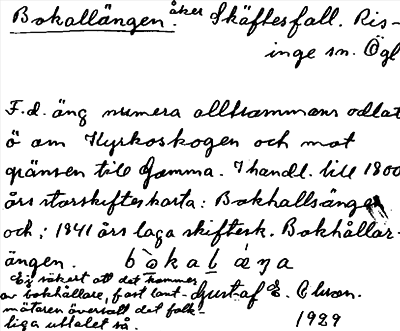 Bokallängen. åker Skäftesfall. Ris-
inge sn. Ögl
F.d. äng numera alltsammans odlat
ö om Kyrkoskogen och mot
gränsen till Gamma. I handl. till 1800
års storskifteskarta: Bokhallsängen
och i 1841 års laga skiftesk. Bokhållar-
ängen. bokalæŋa
Ej säkert att det kommer
av bokhållare, fast lant-
mätaren översatt det folk-
liga uttalet så.
Gustaf E.
1929